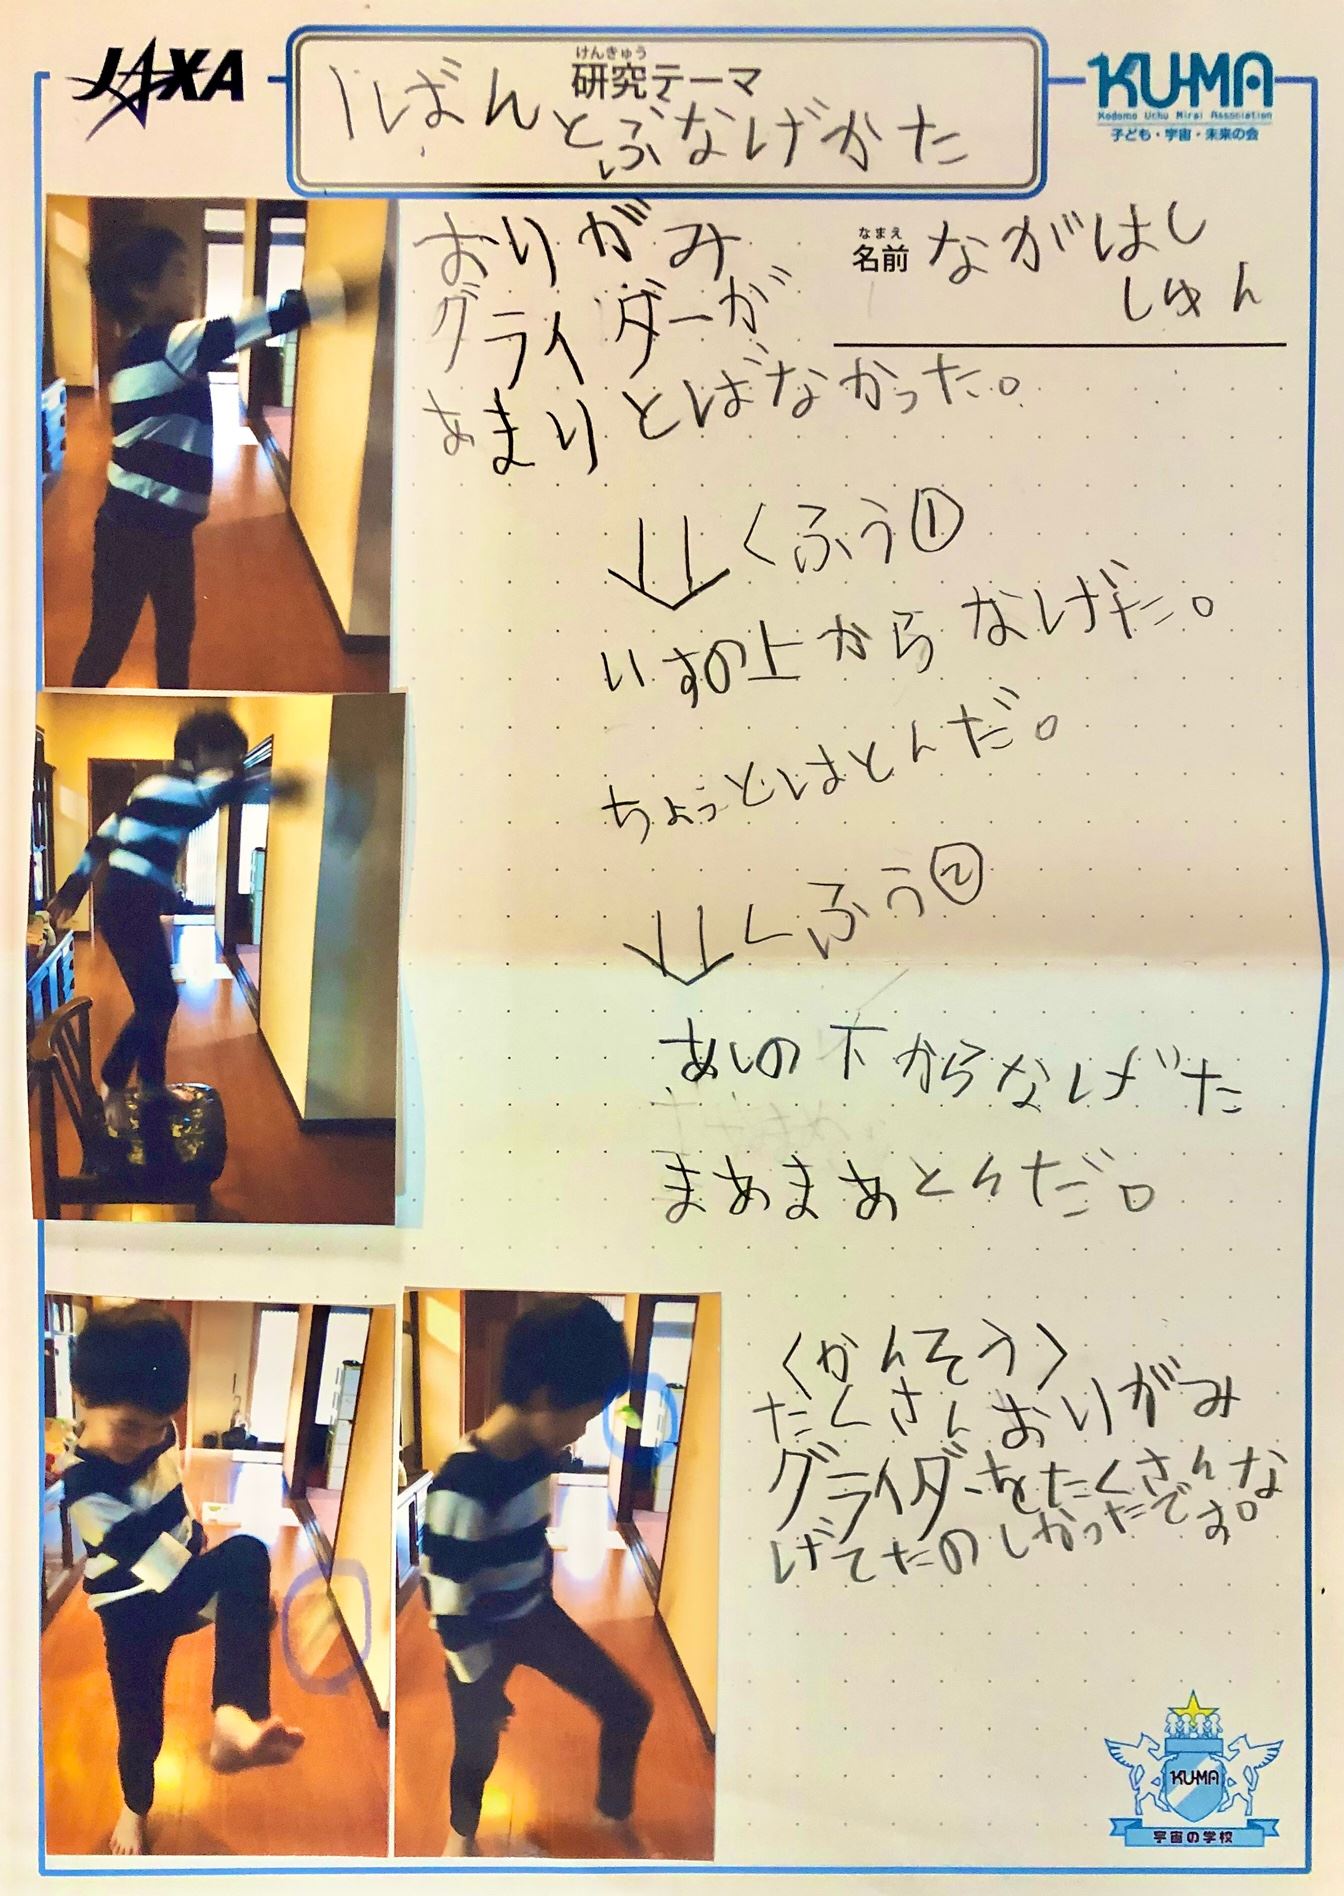 JAXA
けんきゅう
研究テーマ
1ばんとぶなげかた
KU-MA
Kodomo Uchu Mirai Association
子ども・宇宙・未来の会
なまえ
名前 ながはし
しゅん
おりがみ
グライダーが
あまりとばなかった。
くふう①
いすの上からなげた。
ちょっとはとんだ。
くふう②
あしの下からなげた
まあまあとんだ。
〈かんそう〉
たくさんおりがみ
グライダーをたくさんな
げてたのしかったです。
KU-MA
宇宙の学校